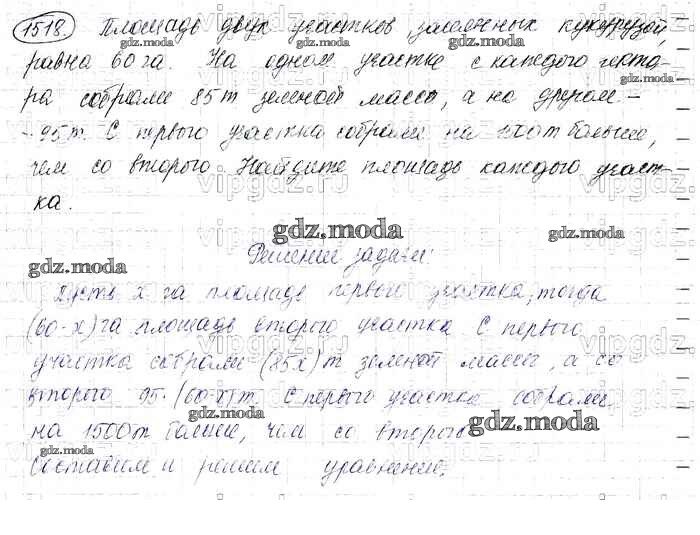 1518. Площадь двух участков засеянных кукурузой,
равна 60 га. На одном участке с каждого гекта-
ра собрали 85т зеленой массы, а на другом -
- 95т. С первого участка собрали на 1500т больше,
чем со второго. Найдите площадь каждого участ-
ка.
Решение задачи:
Пусть х га площадь первого участка, тогда
(60-х)га площадь второго участка. С первого
участка собрали (85х)т зеленой массы, а со
второго 95·(60-х)т. С первого участка собрали
на 1500т больше, чем со второго
Составим и решим уравнение:
gdz.moda
vipgdz.ru